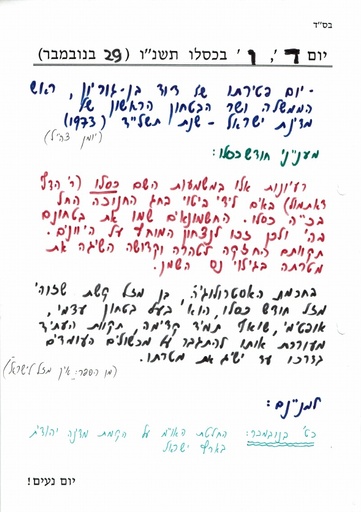 בס"ד
יום ד', ו' בכסלו תשנ"ו (29 בנובמבר)
- יום פטירתו של דוד בן-גוריון, ראש
הממשלה ושר הבטחון הראשון של
מדינת ישראל - שנת תשל"ד (1973)
(יומן צה"ל)
מעניני חודש כסלו:
רעיונות אלו במשמעות השם כסלו (ר' הדף
דאתמול) באים לידי ביטוי בחג החנוכה החל
בכ"ה כסלו. החשמונאים שמו את בטחונם
בה' ולכן זכו לנצחון המוחץ על היוונים.
תקוותם החזקה לטהרה וקדושה השיגה את
מטרתה בגילוי נס השמן.
בחכמת האסטרולוגיה בן מזל קשת שזוהי
מזל חודש כסלו, הוא בעל בטחון עצמי,
אופטימי, שואף תמיד קדימה, תקוות העתיד
מעודדת אותו להתגבר על מכשולים העומדים
בדרכו עד ישיגת מטרתו.
(מן הספר: אין מזל לישראל)
למנינם:
כט' בנובמבר: החלטת האו"מ על הקמת מדינה יהודית
בארץ ישראל
יום נעים!